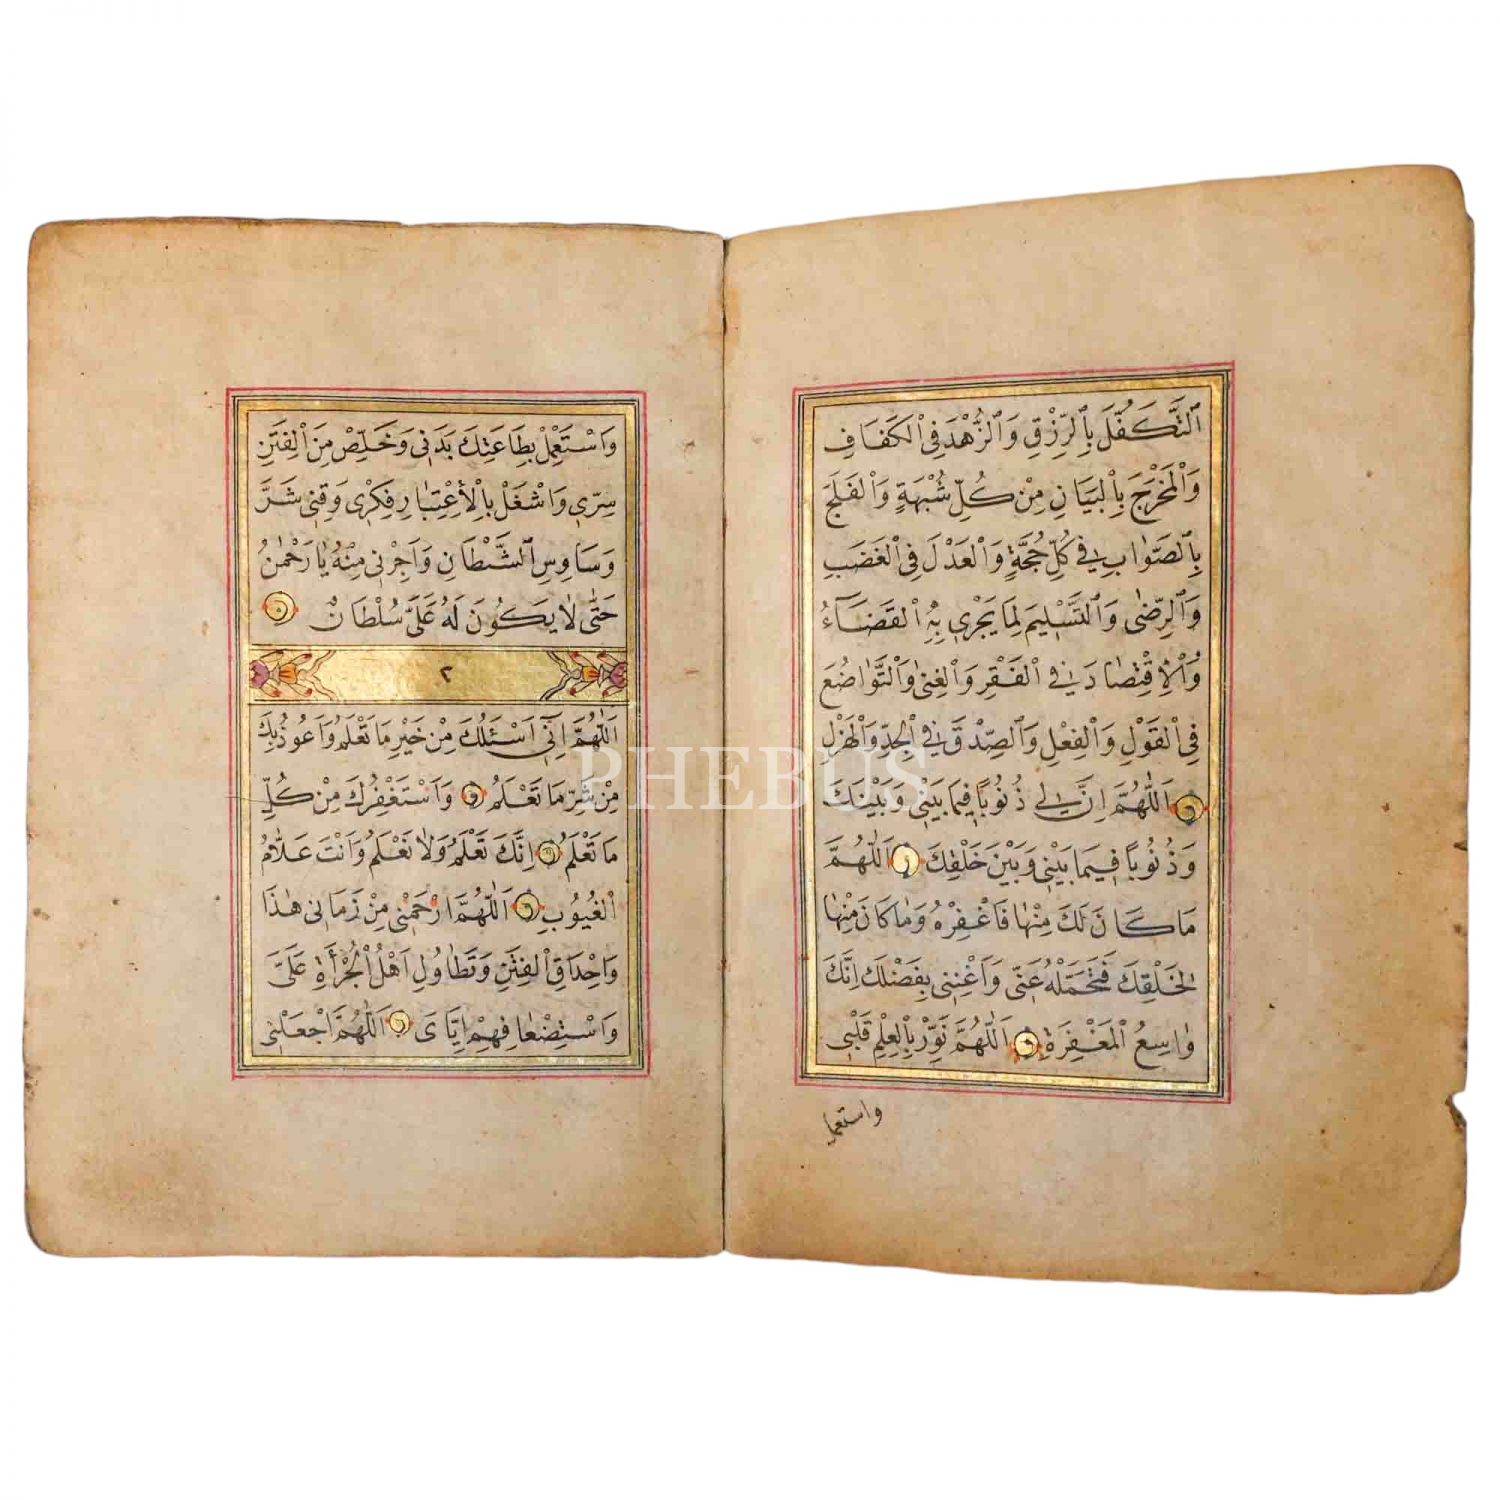 اَلتَّكَفُّلَ بِالرِّزْقِ وَالزُّهْدَ فِي الْكَفَافِ
وَالْمَخْرَجَ بِالْبَيَانِ مِنْ كُلِّ شُبْهَةٍ وَالْفَلَجَ
بِالصَّوَابِ فِي كُلِّ حُجَّةٍ وَالْعَدْلَ فِي الْغَضَبِ
وَالرِّضَى وَالتَّسْلِيمَ لِمَا يَجْرِي بِهِ الْقَضَاءُ
وَالْاِقْتِصَادَ فِي الْفَقْرِ وَالْغِنَى وَالتَّوَاضُعَ
فِي الْقَوْلِ وَالْفِعْلِ وَالصِّدْقَ فِي الْجِدِّ وَالْهَزْلِ
اَللّٰهُمَّ اِنَّ لِي ذُنُوبًا فِيمَا بَيْنِي وَبَيْنَكَ
وَذُنُوبًا فِيمَا بَيْنِي وَبَيْنَ خَلْقِكَ اَللّٰهُمَّ
مَا كَانَ لَكَ مِنْهَا فَاغْفِرْهُ وَمَا كَانَ مِنْهَا
لِخَلْقِكَ فَتَحَمَّلْهُ عَنِّي وَاَغْنِنِي بِفَضْلِكَ اِنَّكَ
وَاسِعُ الْمَغْفِرَةِ اَللّٰهُمَّ نَوِّرْ بِالْعِلْمِ قَلْبِي
واستعمل
وَاسْتَعْمِلْ بِطَاعَتِكَ بَدَنِي وَخَلِّصْ مِنَ الْفِتَنِ
سِرِّي وَاشْغَلْ بِالْاِعْتِبَارِ فِكْرِي وَقِنِي شَرَّ
وَسَاوِسِ الشَّيْطَانِ وَاَجِرْنِي مِنْهُ يَا رَحْمٰنُ
حَتَّى لَا يَكُونَ لَهُ عَلَيَّ سُلْطَانٌ
٢
اَللّٰهُمَّ اِنِّي اَسْئَلُكَ مِنْ خَيْرِ مَا تَعْلَمُ وَاَعُوذُ بِكَ
مِنْ شَرِّ مَا تَعْلَمُ وَاَسْتَغْفِرُكَ مِنْ كُلِّ
مَا تَعْلَمُ اِنَّكَ تَعْلَمُ وَلَا نَعْلَمُ وَاَنْتَ عَلَّامُ
الْغُيُوبِ اَللّٰهُمَّ ارْحَمْنِي مِنْ زَمَانِي هٰذَا
وَاِحْدَاقِ الْفِتَنِ وَتَطَاوُلِ اَهْلِ الْجُرْأَةِ عَلَيَّ
وَاسْتِضْعَافِهِمْ اِيَّايَ اَللّٰهُمَّ اجْعَلْنِي
PHEBUS